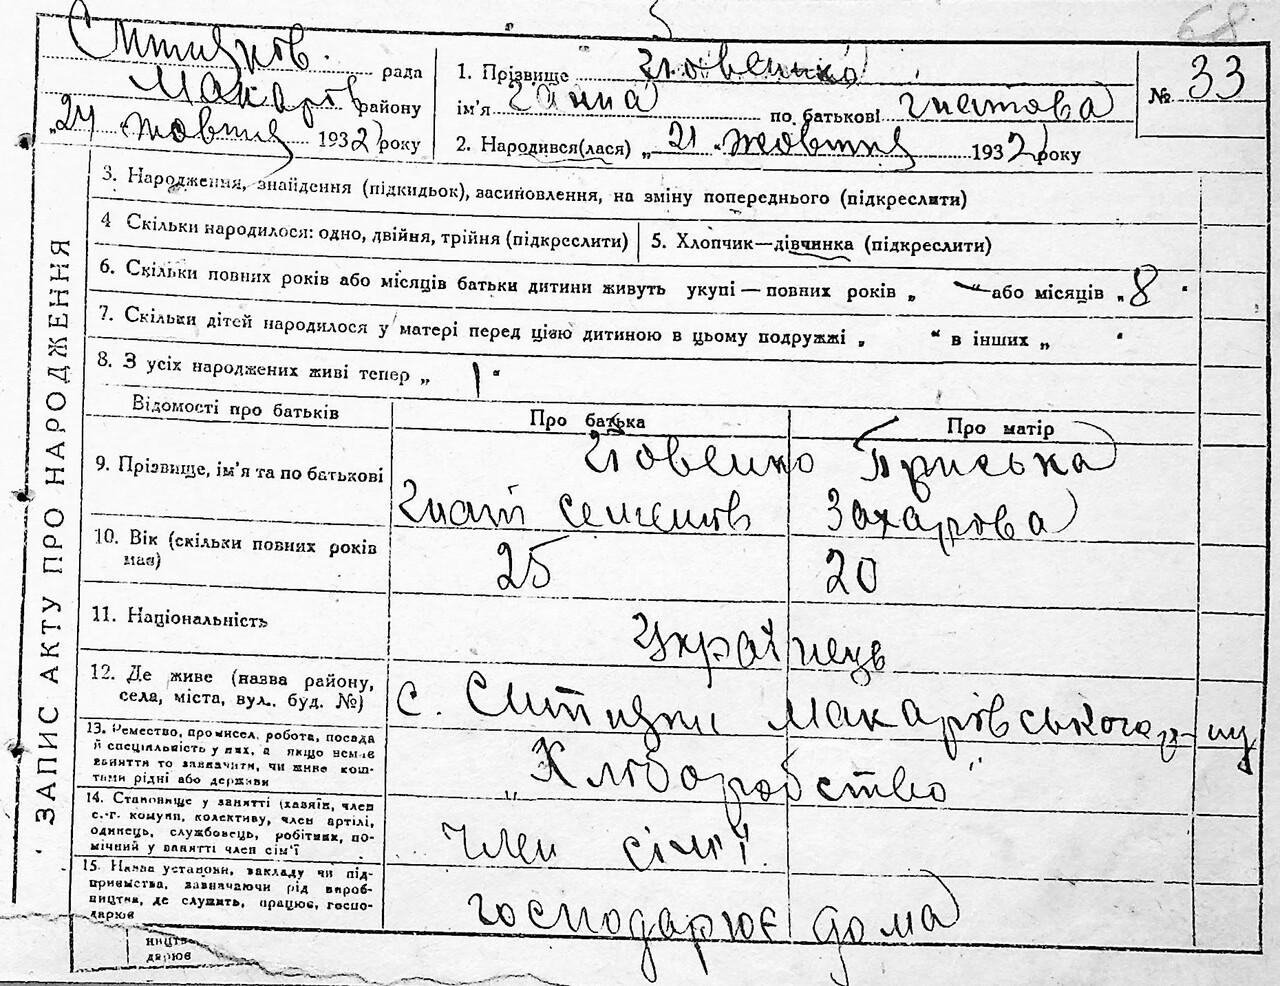 68
Ситняков. рада
Макарів району
„24" жовтня 1932 року
1. Прізвище Яовенко
ім'я Ганна по батькові Гнатова
2. Народився(лася) „21" жовтня 1932 року
№ 33
ЗАПИС АКТУ ПРО НАРОДЖЕННЯ
3. Народження, знайдення (підкидьок), засиновлення, на зміну попереднього (підкреслити)
4 Скільки народилося: одно, двійня, трійня (підкреслити)
5. Хлопчик—дівчинка (підкреслити)
6. Скільки повних років або місяців батьки дитини живуть укупі — повних років „ —" або місяців „8"
7. Скільки дітей народилося у матері перед цією дитиною в цьому подружжі „ " в інших „ "
8. З усіх народжених живі тепер „ 1 "
Відомості про батьків
Про батька
Про матір
9. Прізвище, ім'я та по батькові
Яовенко Приська
Гнат Семенов Захарова
10. Вік (скільки повних років
мав)
25 20
11. Національність
Українець
12. Де живе (назва району,
села, міста, вул.. буд. №)
с. Ситняки Макарівського р-ну
13. Ремество, промисел, робота, посада
й спеціяльність у них, а якщо немає
заняття то зазначити, чи живе кош-
тами рідні або держави
„Хліборобство"
14. Становище у занятті (хазяїн, член
с.-г. комуни, колективу, член артілі,
одинець, службовець, робітник, по-
мічний у занятті член сім'ї
член сім'ї
15. Назва установи, закладу чи під-
приємства, зазначаючи рід вироб-
ництва, де служить, працює, госпо-
дарює
господарює дома
ництва
дарює